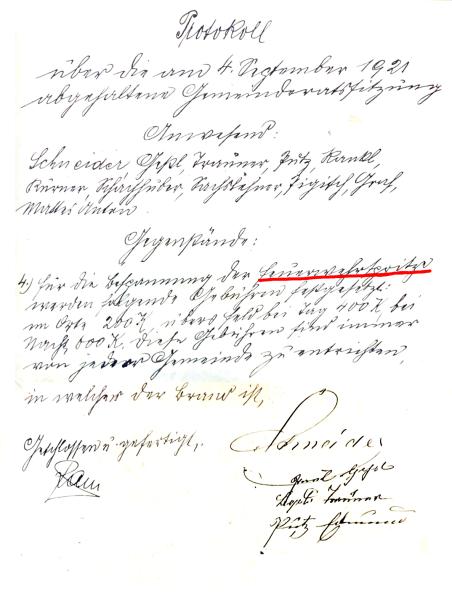 Protokoll
über die am 4. September 1921
abgehaltene Gemeinderatssitzung
Anwesend:
Schneider, Gessl, Trauner, Putz, Rankl,
Kürner, Schachhuber, Sachslehner, Zigitch, Graf,
Mattes Anton
Gegenstände:
4.) Für die Bespannung der Feuerwehrspritze
werden folgende Gebühren festgesetzt:
im Orte 200 K, übers Feld bei Tag 400 K bei
Nacht 000 K. Diese Gebühren sind immer
von jeder Gemeinde zu entrichten,
in welcher der Brand ist,
Geschlossen u. gefertigt,
Schneider
Trauner
Putz Edmund